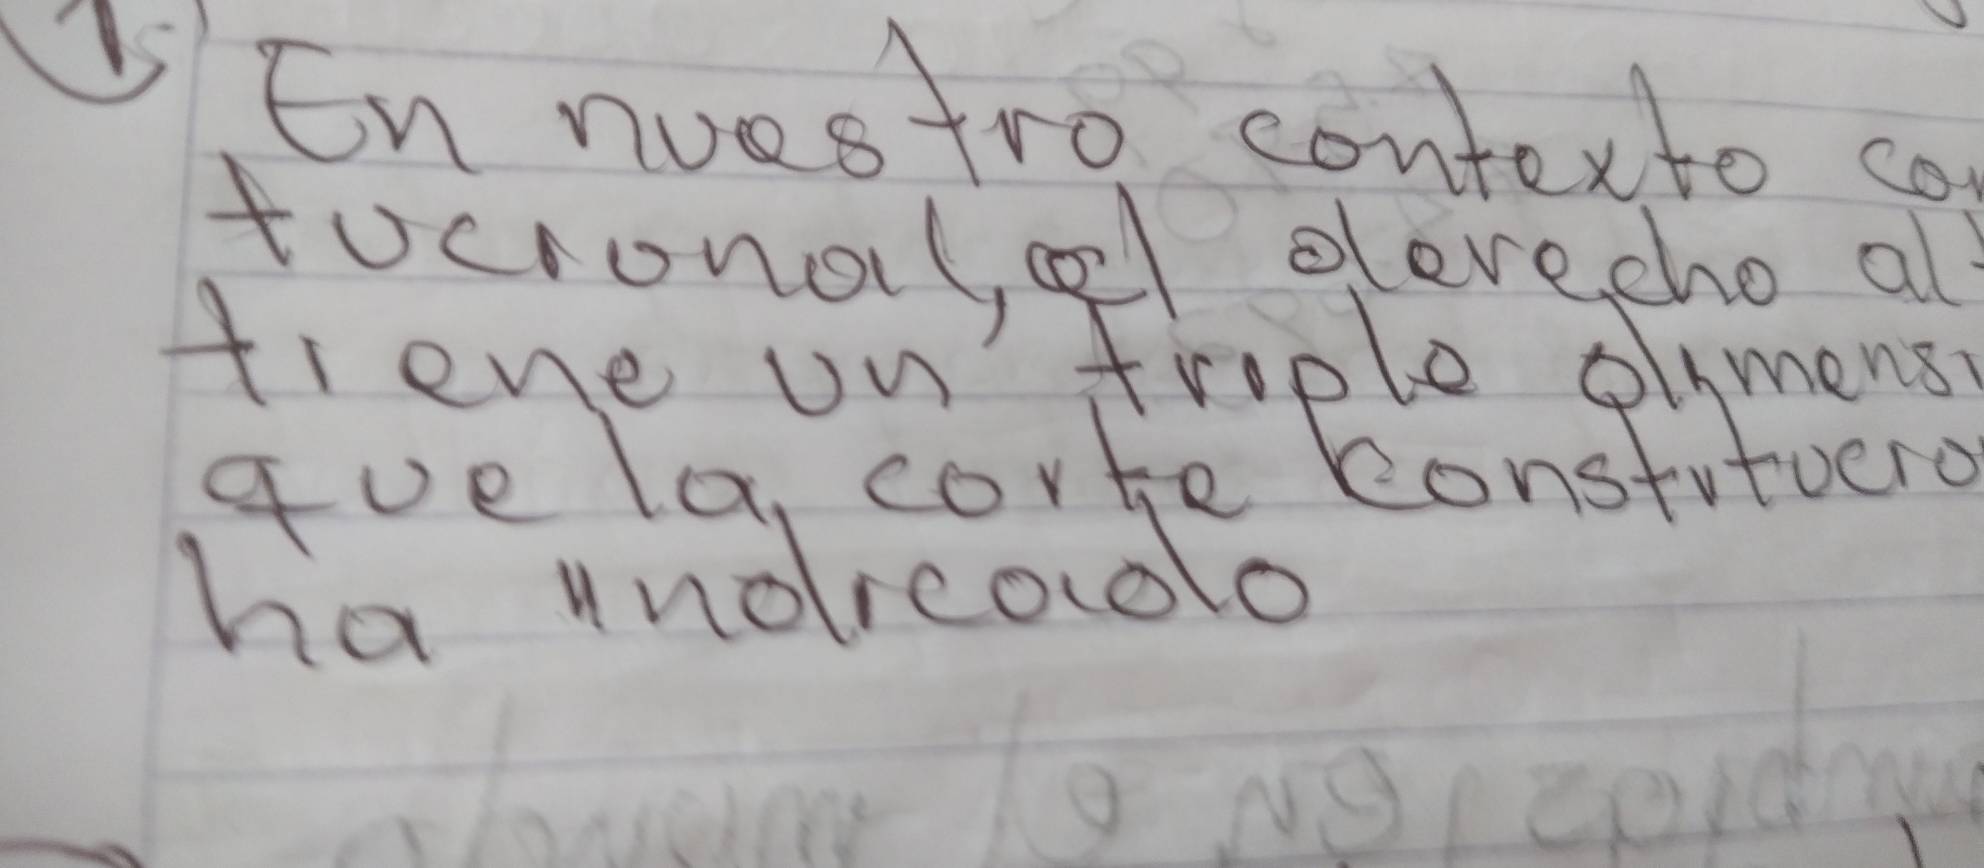 En nuestro contexto con
tucional, el derecho al t
tiene un triple dimensi
que la corte constitucio
ha indicado